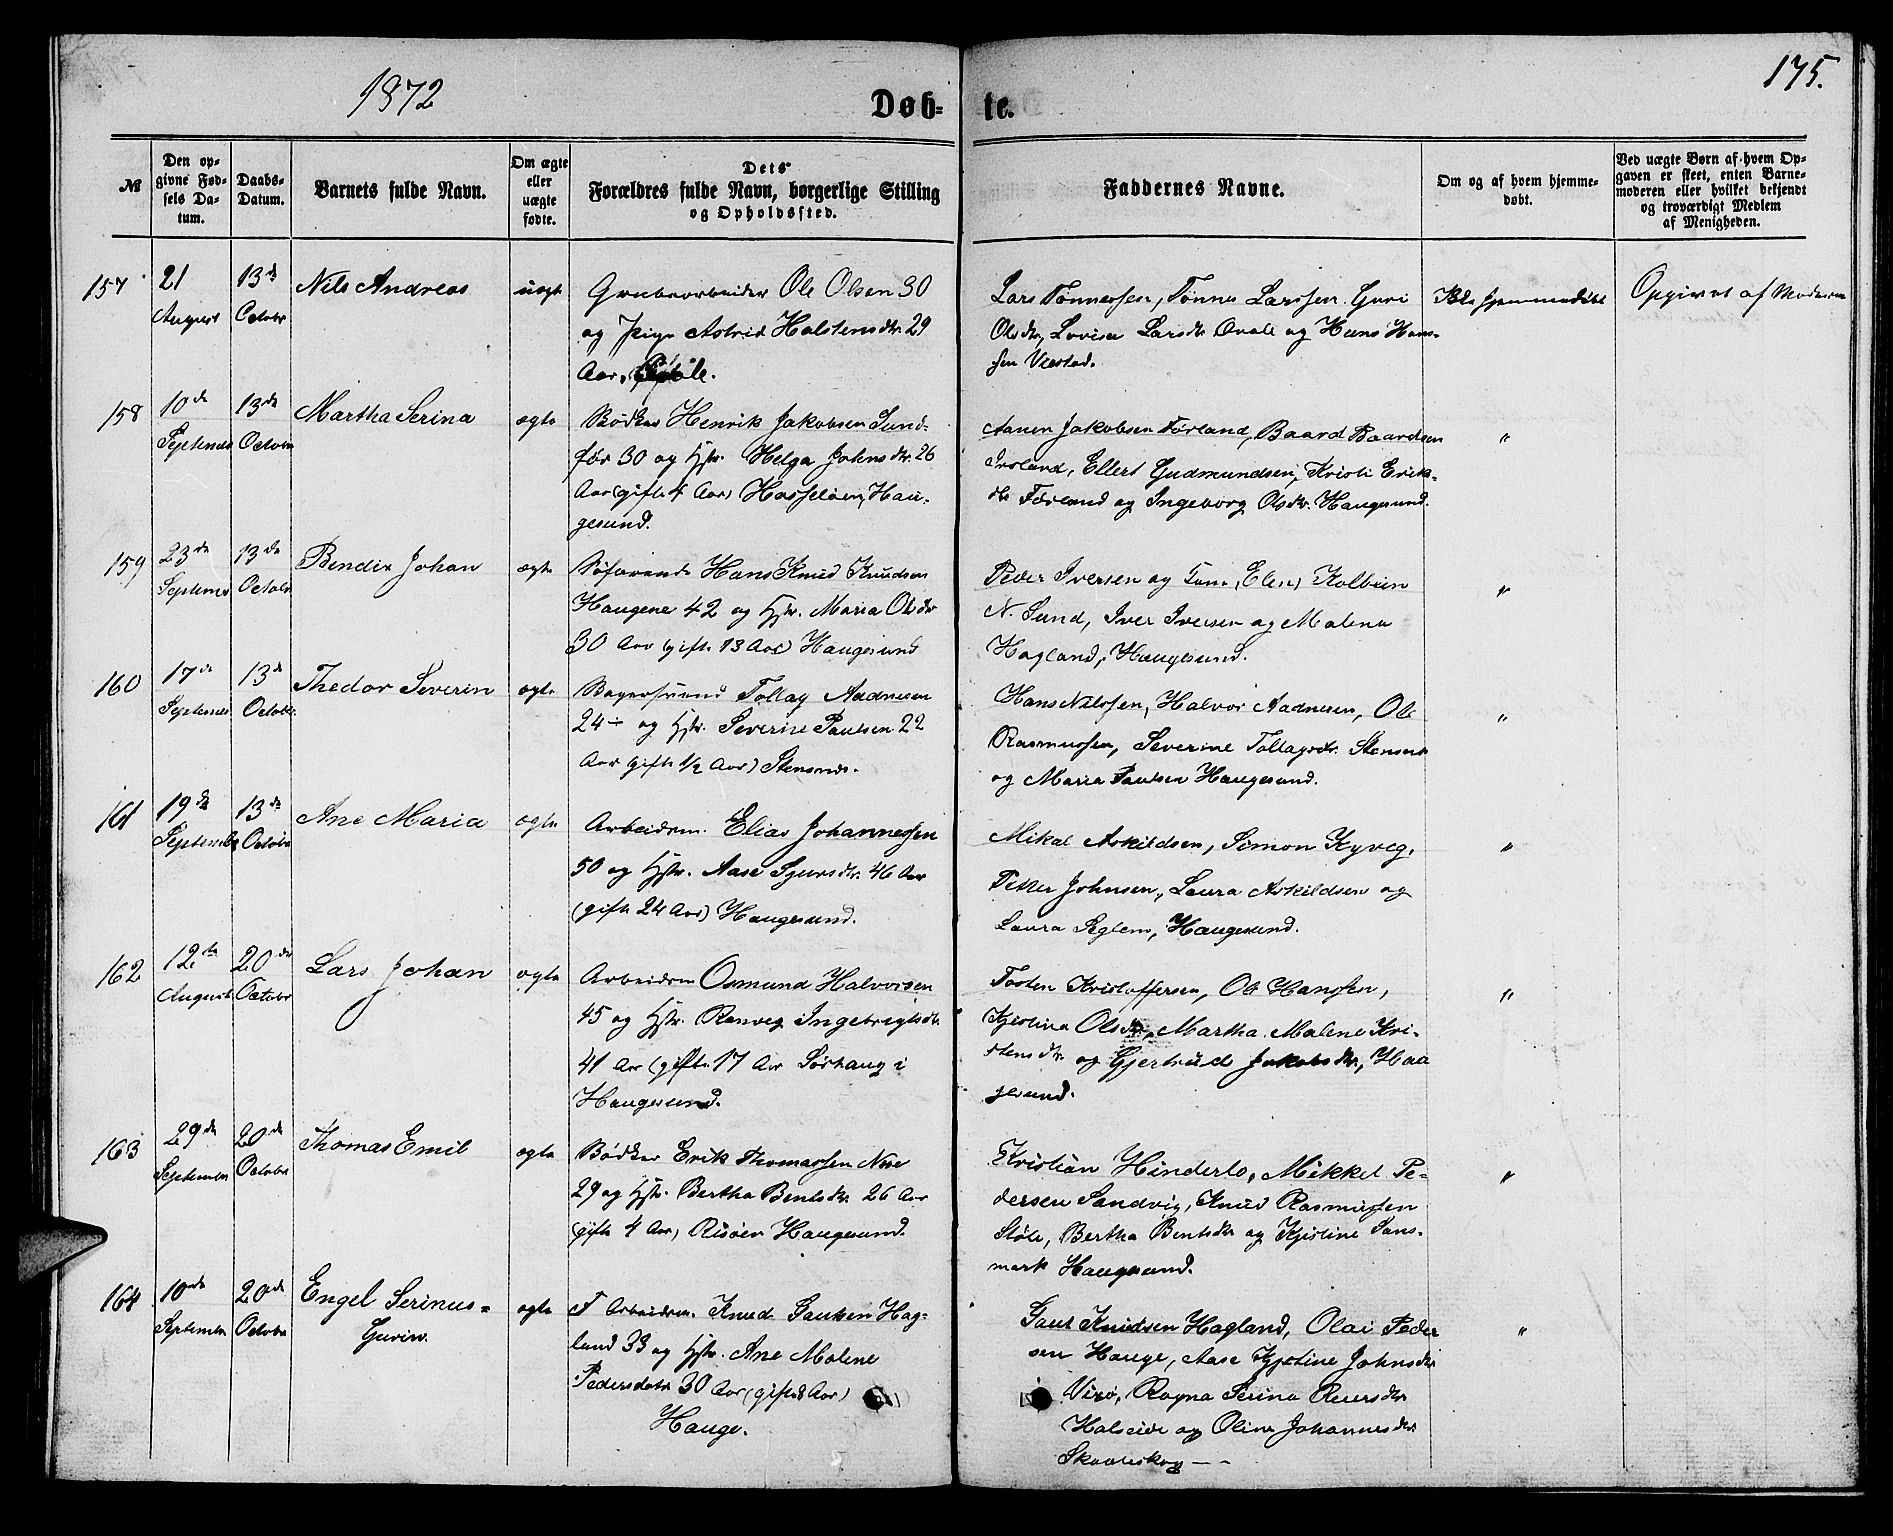 1872
Døb-
te.
175.
№
Den op-
givne Fød-
sels Da-
tum.
Daabs-
Datum.
Barnets fulde Navn.
Om ægte
eller
uægte
fødte.
Dets
Forældres fulde Navn, borgerlige Stilling
og Opholdssted.
Faddernes Navne.
Om og af hvem hjemme-
døbt.
Ved uægte Børn af hvem Op-
gaven er skeet, enten Barne-
moderen eller hvilket bekjendt
og troværdigt Medlem
af Menigheden.
157
21
August
13de
Octobr
Nils Andreas
uægt
Grubearbeider Ole Olsen 30
og Pige Astrid Halstensdtr. 29
Aar,
Lars Tønnessen, Tønnes Larssen, Guri
Olsdtr, Lovise Larsdtr Qvale og Hans Han-
sen Viestad.
Ikke hjemmedøbt
Opgivet af Moderen
158
10de
September
13de
Octobr
Martha Serina
ægte
Bødker Henrik Jakobsen Sund-
før 30 og Hstr. Helga Johnsdtr. 26
Aar (gifte 4 Aar) Hasseløen, Hau-
gesund.
Aanen Jakobsen Førland, Baard Baardsen
Ellert Gudmundsen, Kristi Erik-
dtr Førland og Ingeborg Olsdtr. Haugesund.
"
159
23de
September
13de
Octobr
Bendix Johan
ægte
Søfarende Hans Knud Knudsen
Haugene 42 og Hstr. Maria Olsdtr
30 Aar (gifte 13 Aar) Haugesund
Peder Iversen og Kone, Elen Kolbein
N. Sund, Iver Iversen og Malena
Hagland, Haugesund.
"
160
17de
September
13de
October
Thedor Severin
ægte
Bagersvend Tollag Aadnesen
24 - og Hstr. Severine Paulsen 22
Aar (gifte 1/2 Aar) Stensnes.
Hans Nilssen, Halvor Aadnesen, Ole
Rasmussen, Severine Tollagsdtr. Stensnes
og Maria Paulsen Haugesund.
"
161
19de
September
13de
Octobr
Ane Maria
ægte
Arbeidsm. Elias Johannessen
50 og Hstr. Aase Sjursdtr. 46 Aar
(gifte 24 Aar) Haugesund.
Mikal Askildsen, Simon Kyveg,
Petter Johnsen, Laura Askildsen og
Laura Seglem, Haugesund.
"
162
12te
August
20de
Octobr
Lars Johan
ægte
Arbeidsm Osmund Halvorsen
45 og Hstr. Ranveg Ingebrigtsdtr.
41 Aar (gifte 17 Aar Sørhaug i
Haugesund.
Tosten Kristoffersen, Ole Hanssen,
Kjistina Olsdtr, Martha Malene Kri-
stensdtr. og Gjertrud Jakobsdtr., Hau
gesund.
"
163
29de
September
20de
Octobr
Thomas Emil
ægte
Bødker Erik Thomassen
29 og Hstr. Bertha Bentsdtr. 26 Aar
(gifte 4 Aar) Risøen Haugesund.
Kristian Hinderlo, Mikkel Pe-
dersen Sandvig, Knud Rasmussen
Støle, Bertha Bentsdtr og Kjistine Sans-
mark Haugesund.
"
164
10de
September
20de
Octobr
Engel Serinus-
Gurin.
ægte
F Arbeidsm. Knud Gautsen Hag-
land 33 og Hstr. Ane Malene
Pedersdatr 30 Aar (gifte 8 Aar)
Hauge.
Gaut Knudsen Hagland, Olai Peder
sen Hauge, Aase Kjistine Johnsdtr
Ragna Serina
Halseide og Oline Johannesdtr
Skaaleskog - -
"